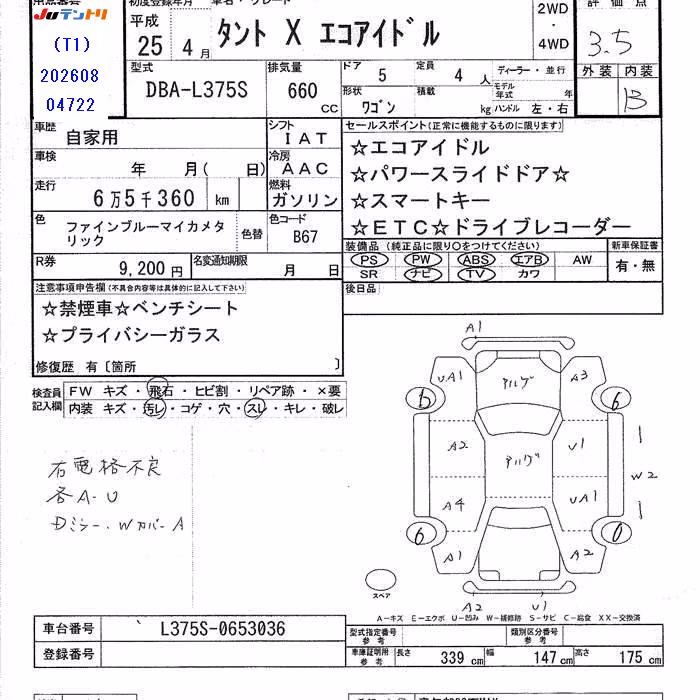 初度登録年月 車名・グレード 評価点
Juテントリ
(T1)
202608
04722
平成
25 4月
タント X エコアイドル
2WD
・
4WD
3.5
外装 内装
B
型式
DBA-L375S
排気量
660 cc
ドア 5 定員 4 人
ディーラー・並行
形状 ワゴン 積載 kg
モデル年式 年
ハンドル 左・右
車歴
自家用
シフト IAT
車検 年 月( 日)
冷房 AAC
走行 6万5千360 km
燃料 ガソリン
色 ファインブルーマイカメタリック
色替
色コード B67
R券 9,200円
名変通知期限 月 日
セールスポイント(正常に機能するものに限ります)
☆エコアイドル
☆パワースライドドア☆
☆スマートキー
☆ETC☆ドライブレコーダー
装備品 (純正品に限り○をつけてください)
新車保証書
PS PW ABS エアB AW
SR ナビ TV カワ
有・無
後日品
注意事項申告欄(不具合内容等は具体的に記入して下さい)
☆禁煙車☆ベンチシート
☆プライバシーガラス
修復歴 有〔箇所 〕
検査員
記入欄
FW キズ・飛石・ヒビ割・リペア跡・×要
内装 キズ・汚レ・コゲ・穴・スレ・キレ・破レ
右電格不良
各A・U
Dミラー・WカバーA
A1
UA1 アルゲ A3
6 6
A2 アルゲ U1
W2
A4 UA1
6 0
A1 A2
スペア
A2 U1
A-キズ E-エクボ U-凹み W-補修跡 S-サビ C-腐食 XX-交換済
車台番号 L375S-0653036
登録番号
型式指定番号 参考
類別区分番号 参考
車庫証明用 参考
長さ 339 cm 幅 147 cm 高さ 175 cm